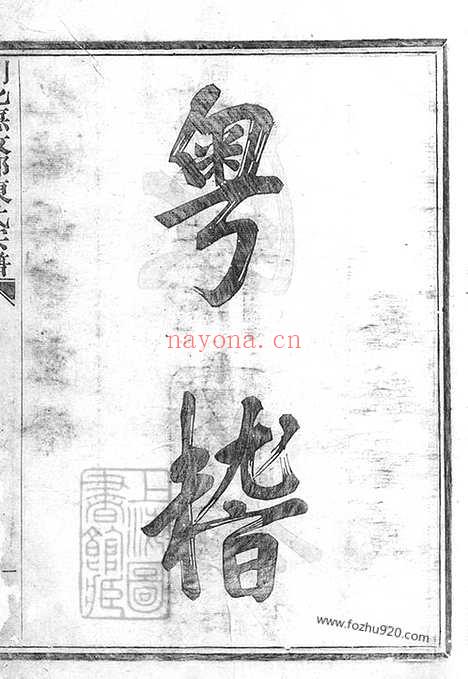 粵稽
氏宗譜
一
上海圖書館藏
nayona.cn
www.fozhu920.com